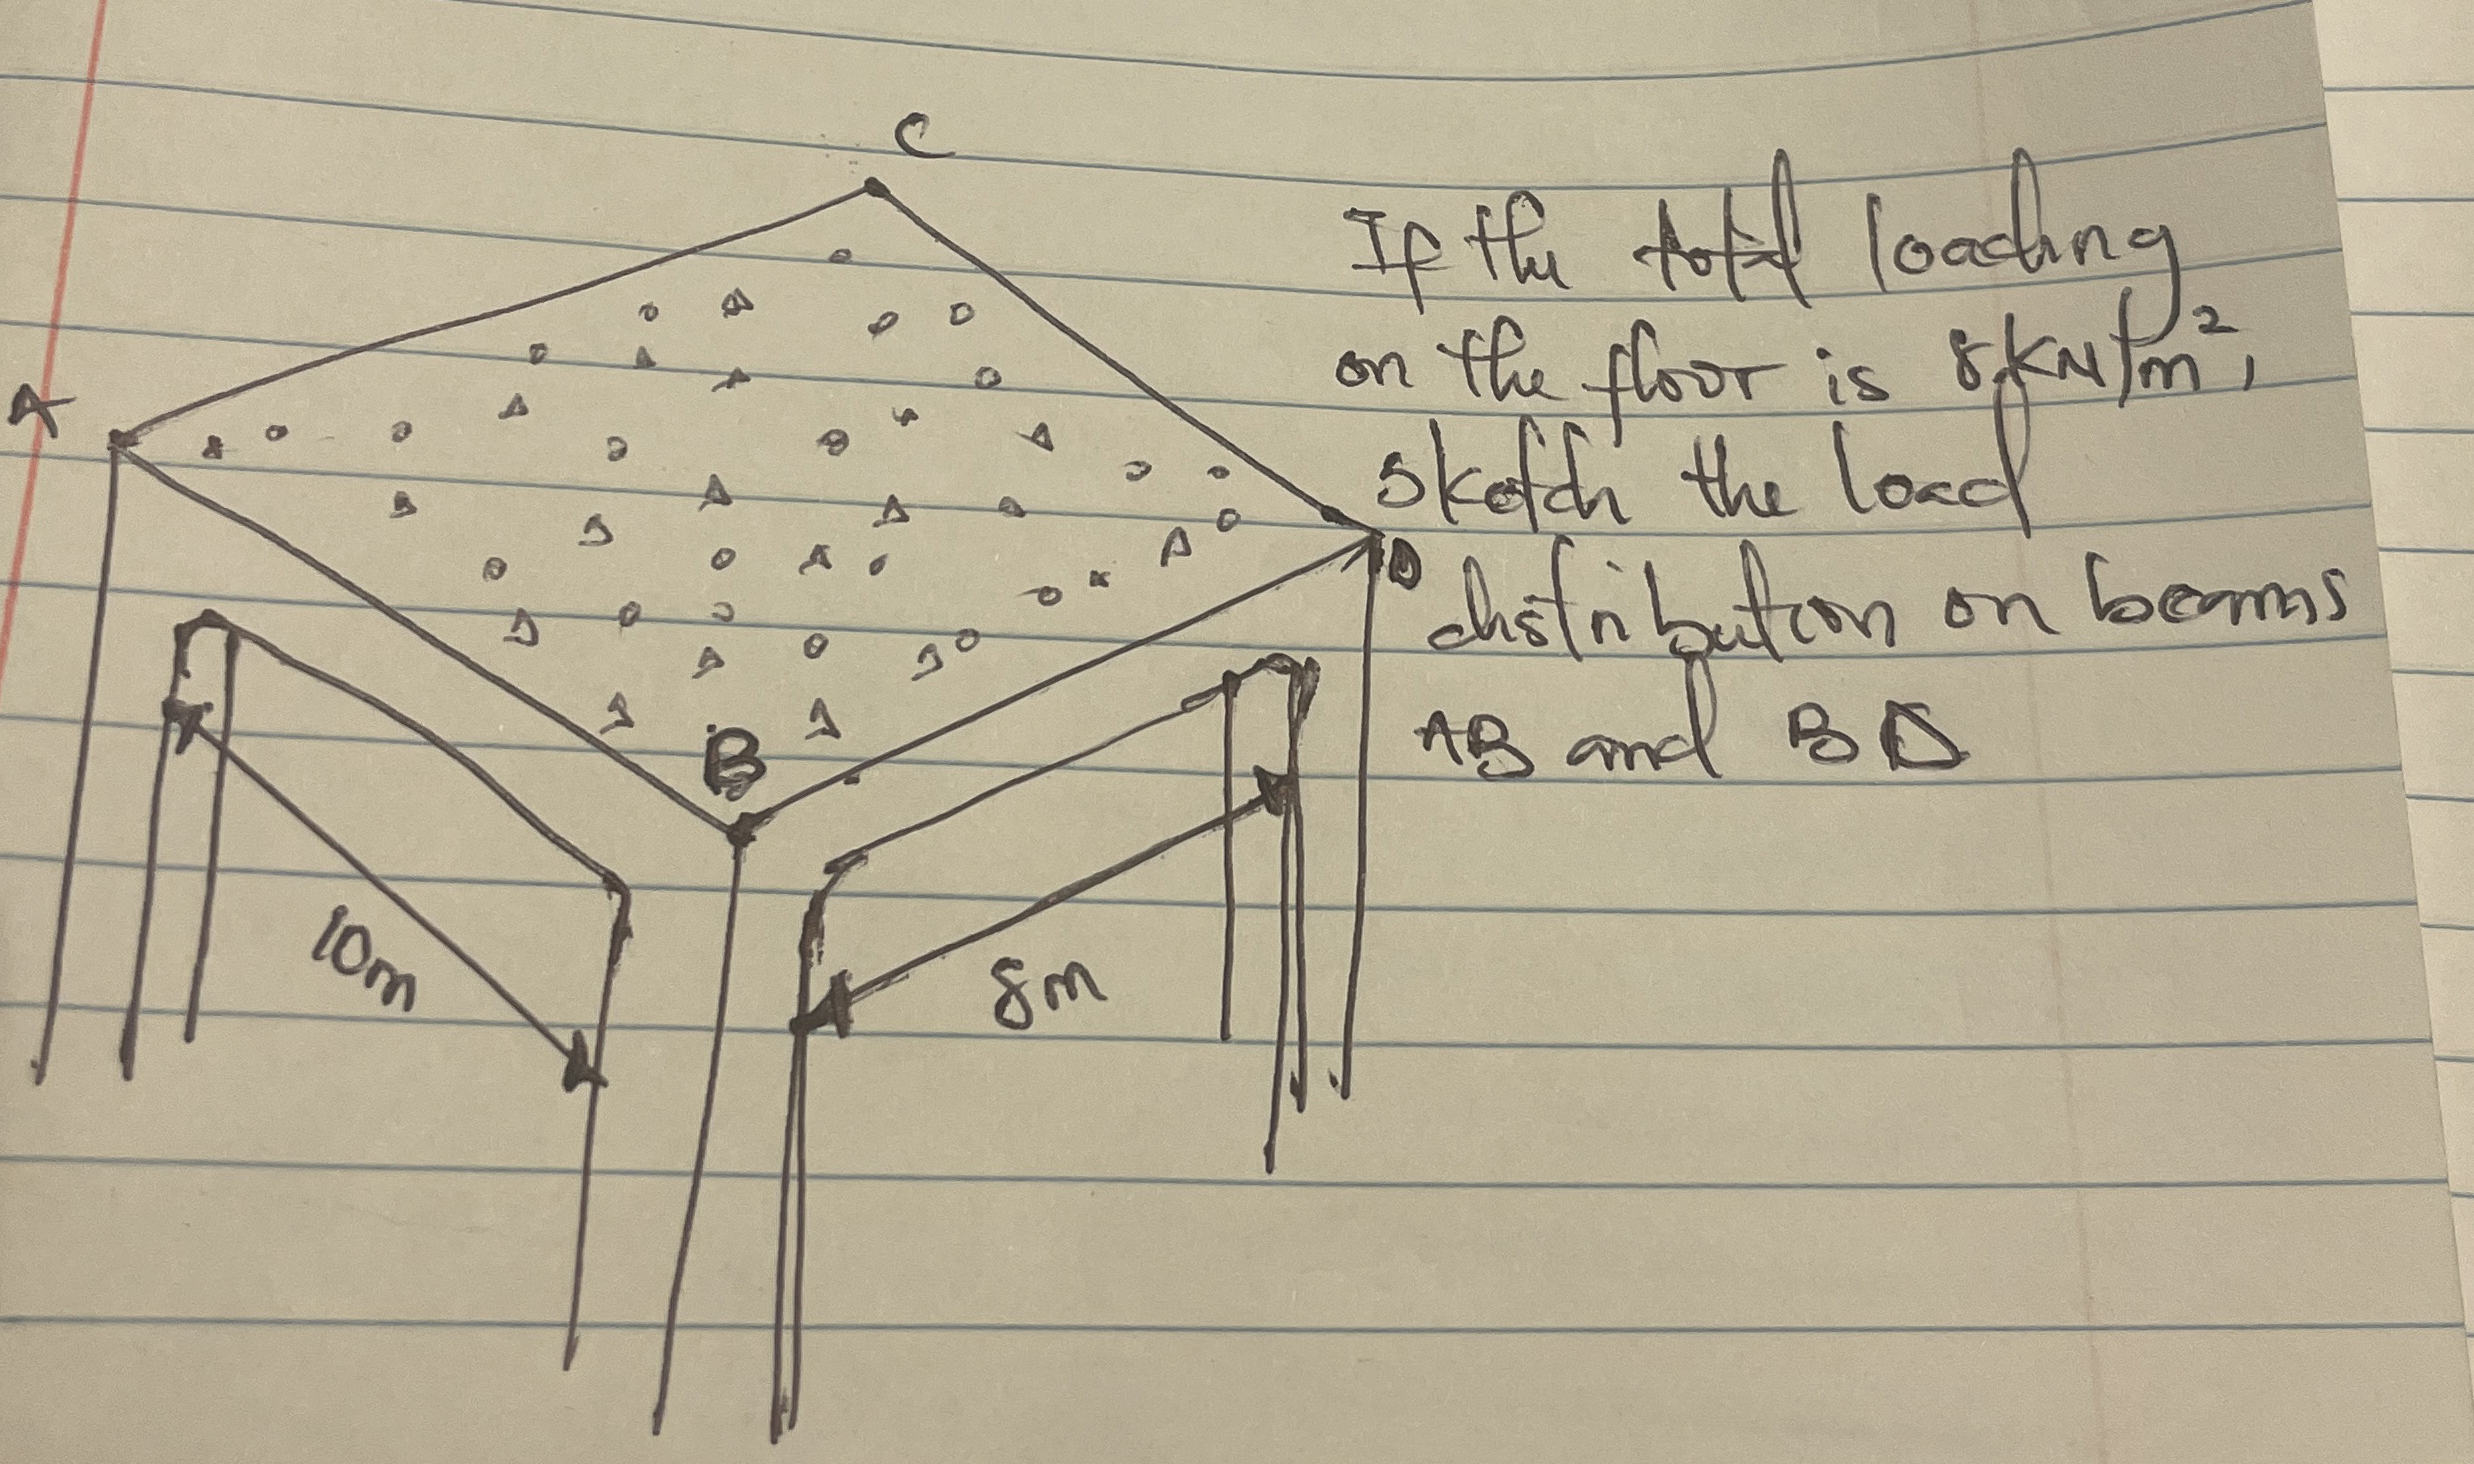 C
A
B
D
10m
8m
If the total loading
on the floor is 8KN/m²,
Sketch the load
distribution on beams
AB and BD